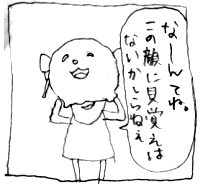 なーんてね。
この顔に見覚えは
ないかしらねぇ